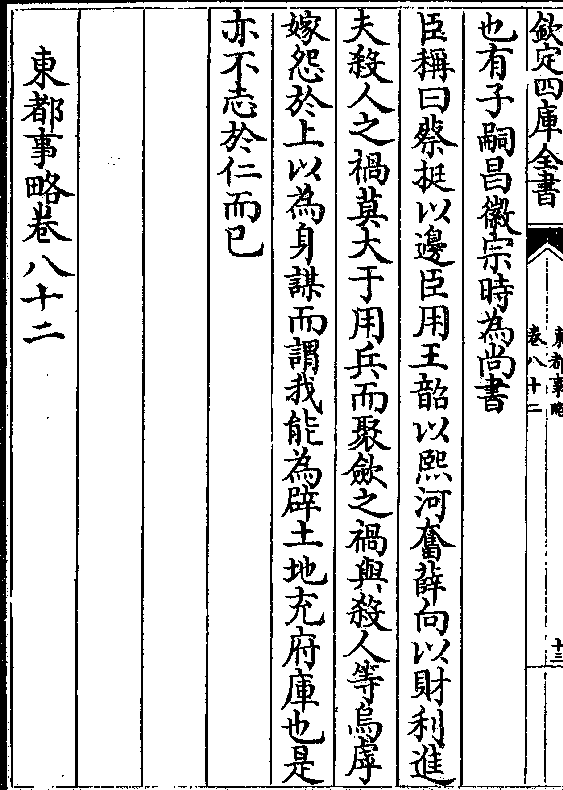 欽定四庫全書
東都事略
卷八十二
十三
也有子嗣昌徽宗時為尚書
臣稱曰蔡挺以邊臣用王韶以熙河奮薛向以財利進
夫殺人之禍莫大于用兵而聚歛之禍與殺人等烏虖
嫁怨於上以為身謀而謂我能為辟土地充府庫也是
亦不志於仁而已
東都事略卷八十二